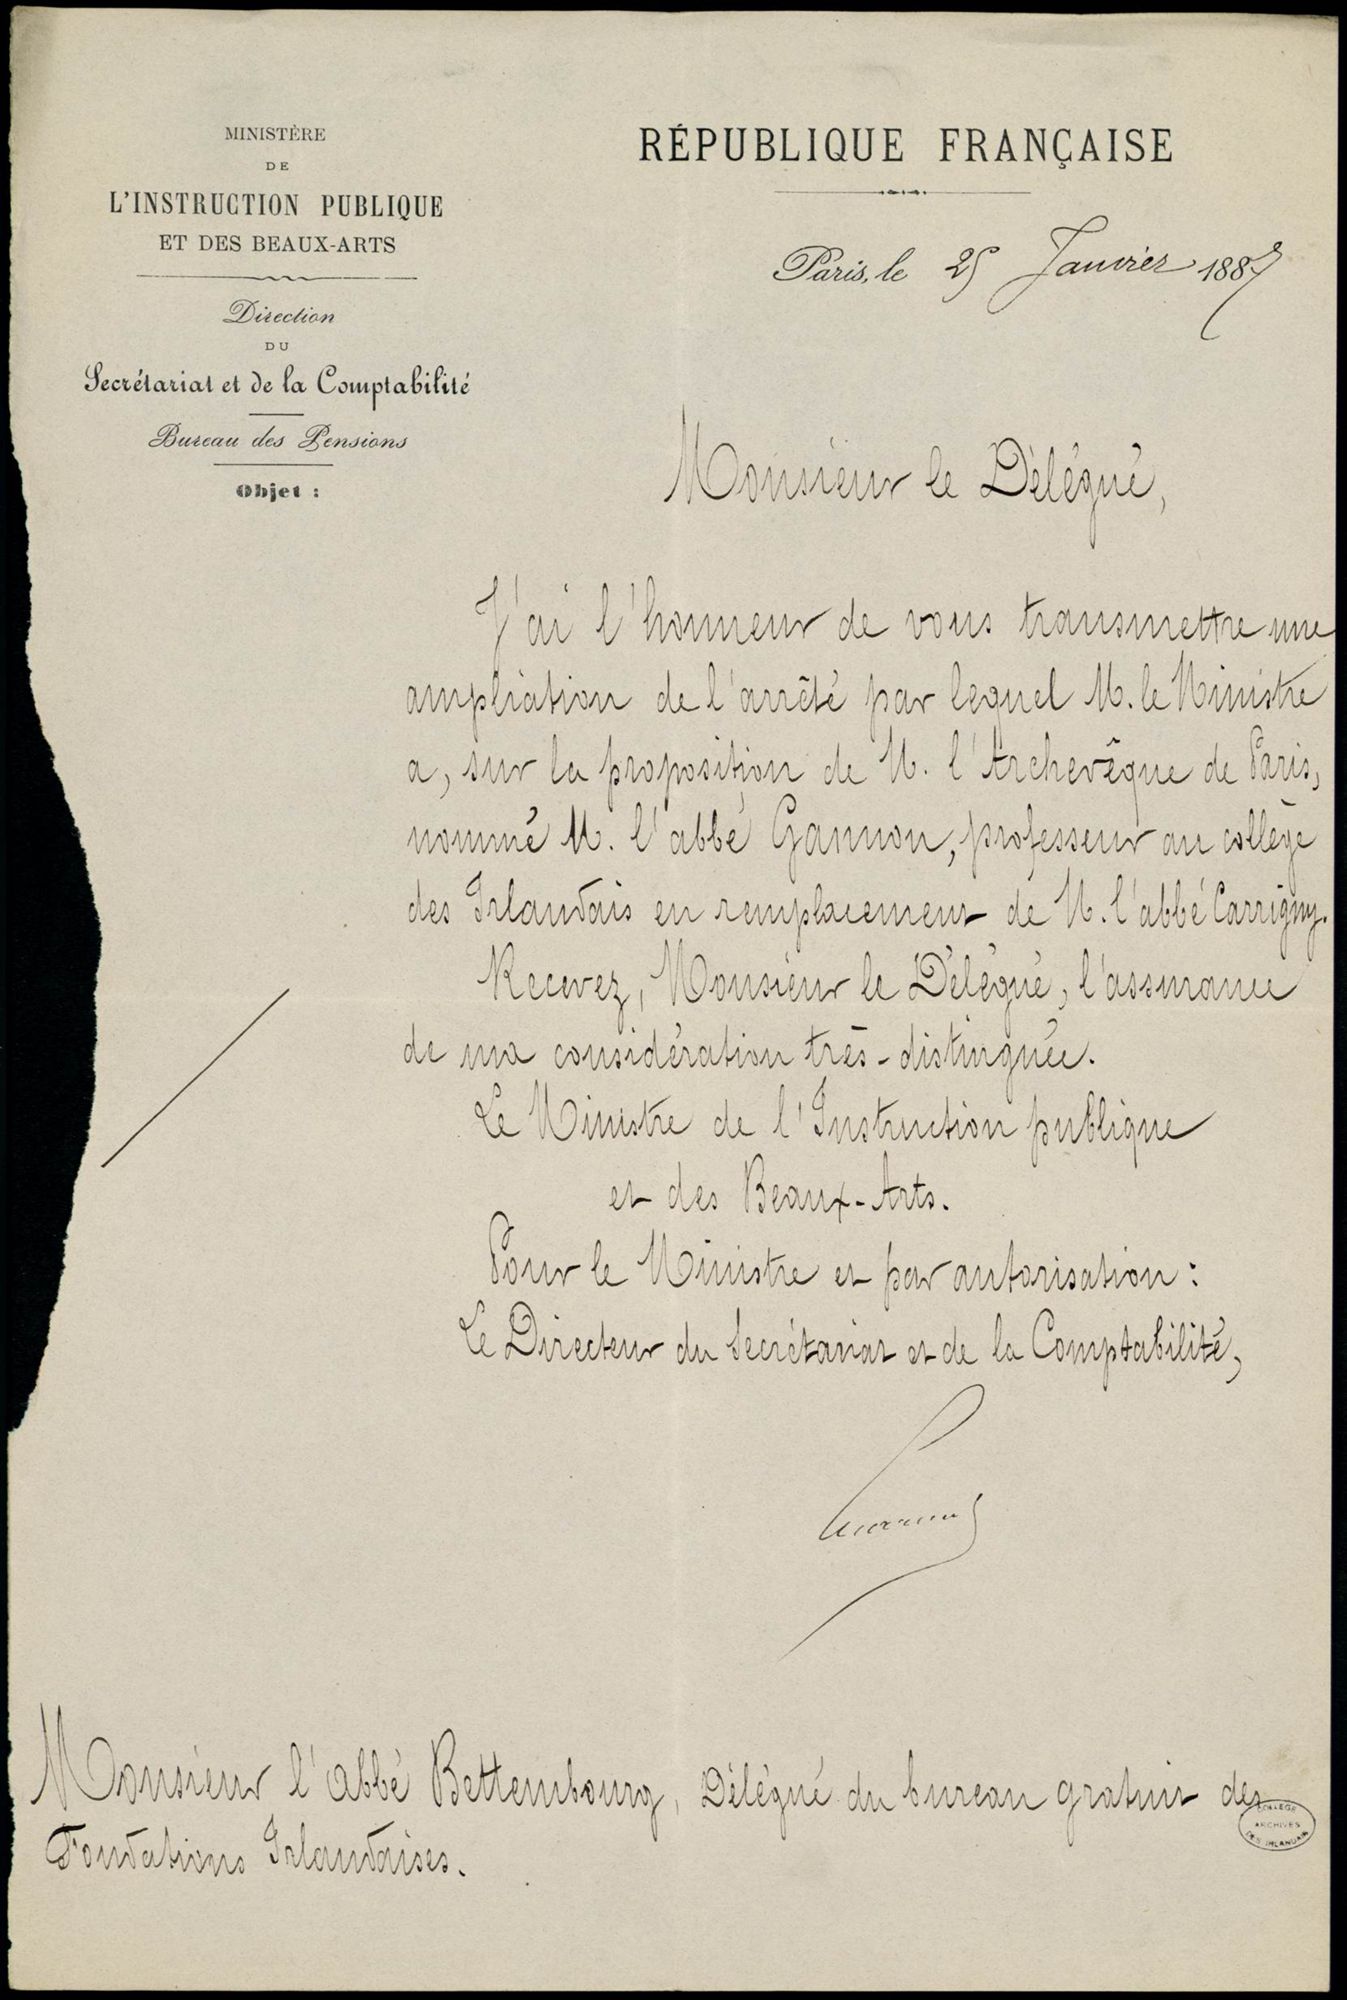 MINISTÈRE
DE
L'INSTRUCTION PUBLIQUE
ET DES BEAUX-ARTS
Direction
DU
Secrétariat et de la Comptabilité
Bureau des Pensions
Objet :
RÉPUBLIQUE FRANÇAISE
Paris, le 25 Janvier 1887
Monsieur le Délégué,
J'ai l'honneur de vous transmettre une
ampliation de l'arrêté par lequel M. le Ministre
a, sur la proposition de M. l'Archevêque de Paris,
nommé M. l'abbé Gannon, professeur au collège
des Irlandais en remplacement de M. l'abbé Carrigny.
Recevez, Monsieur le Délégué, l'assurance
de ma considération très-distinguée.
Le Ministre de l'Instruction publique
et des Beaux-Arts.
Pour le Ministre et par autorisation :
Le Directeur du Secrétariat et de la Comptabilité,
Monsieur l'abbé Bettembourg, Délégué du bureau gratuit des
Fondations Irlandaises.
COLLEGE
ARCHIVES
DES IRLANDAIS